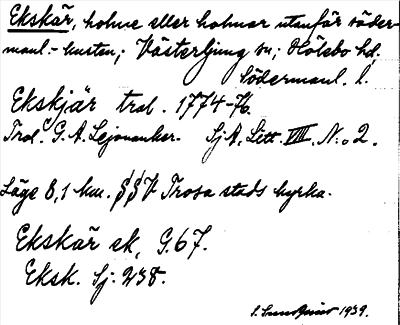 Ekskär, holme eller holmar utanför söder-
manl.-kusten; Västerljung sn; Hölebo hd,
Södermanl. l.
Ekskjär trol. 1774-76.
Trol. G. A. Lejonanker. Sj A. Litt. VIII. N:o 2.
Läge 8,1 km. SSV Trosa stads kyrka.
Ekskär ek, G.67.
Eksk. Sj: 238.
1939.